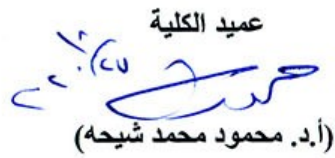 عميد الكلية
(أ.د. محمود محمد شيحه)